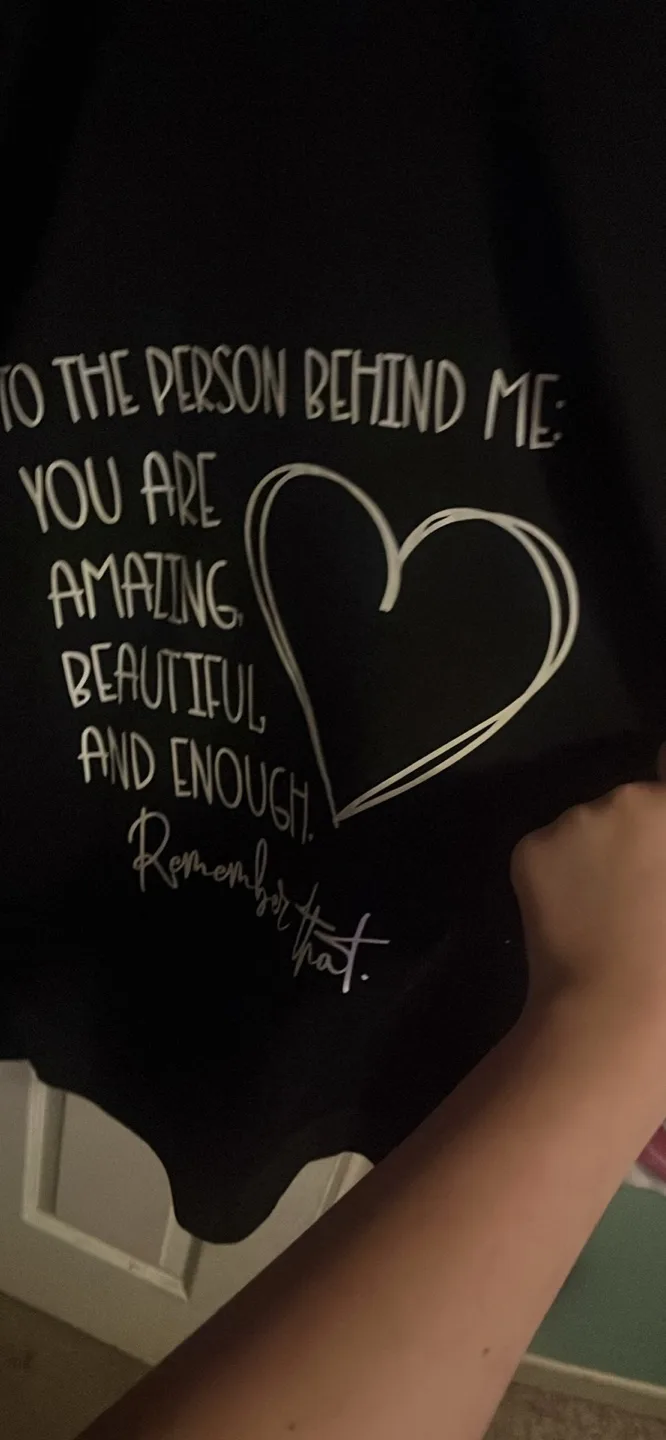 TO THE PERSON BEHIND ME:
YOU ARE
AMAZING,
BEAUTIFUL,
AND ENOUGH.
Remember that.